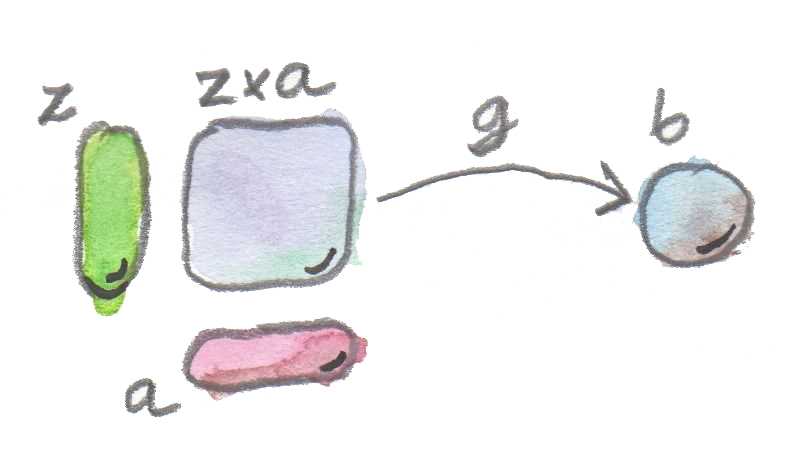 z
z×a
g
b
a